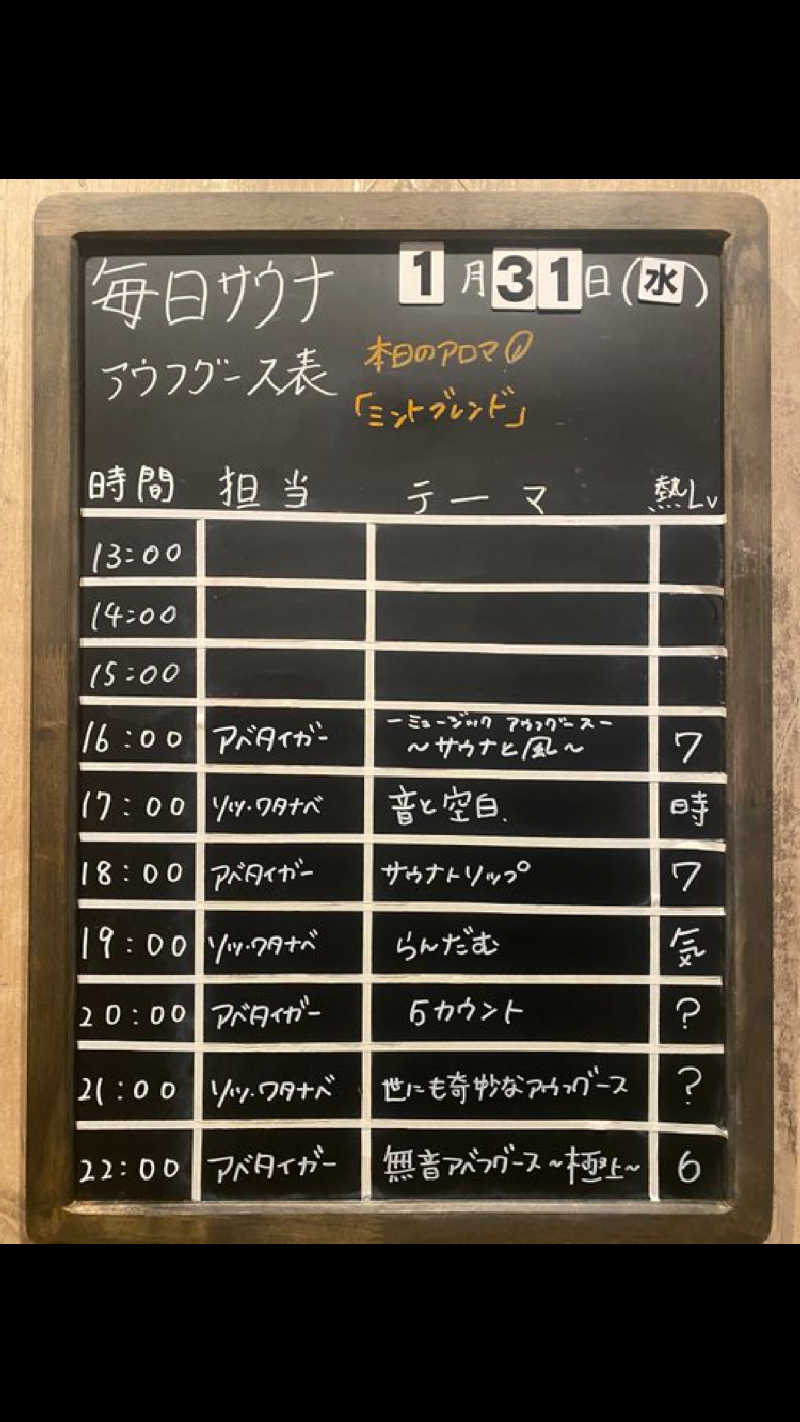 毎日サウナ 1月31日(水)
アウフグース表 本日のアロマ
「ミントブレンド」
時間 担当 テーマ 熱Lv
13:00
14:00
15:00
16:00 アベタイガー －ミュージック アウフグース－ 7
～サウナと風～
17:00 ソッソ・ワタナベ 音と空白、 時
18:00 アベタイガー サウナトリップ 7
19:00 ソッソ・ワタナベ らんだむ 気
20:00 アベタイガー 5カウント ?
21:00 ソッソ・ワタナベ 世にも奇妙なアウフグース ?
22:00 アベタイガー 無音アベフグース～極上～ 6